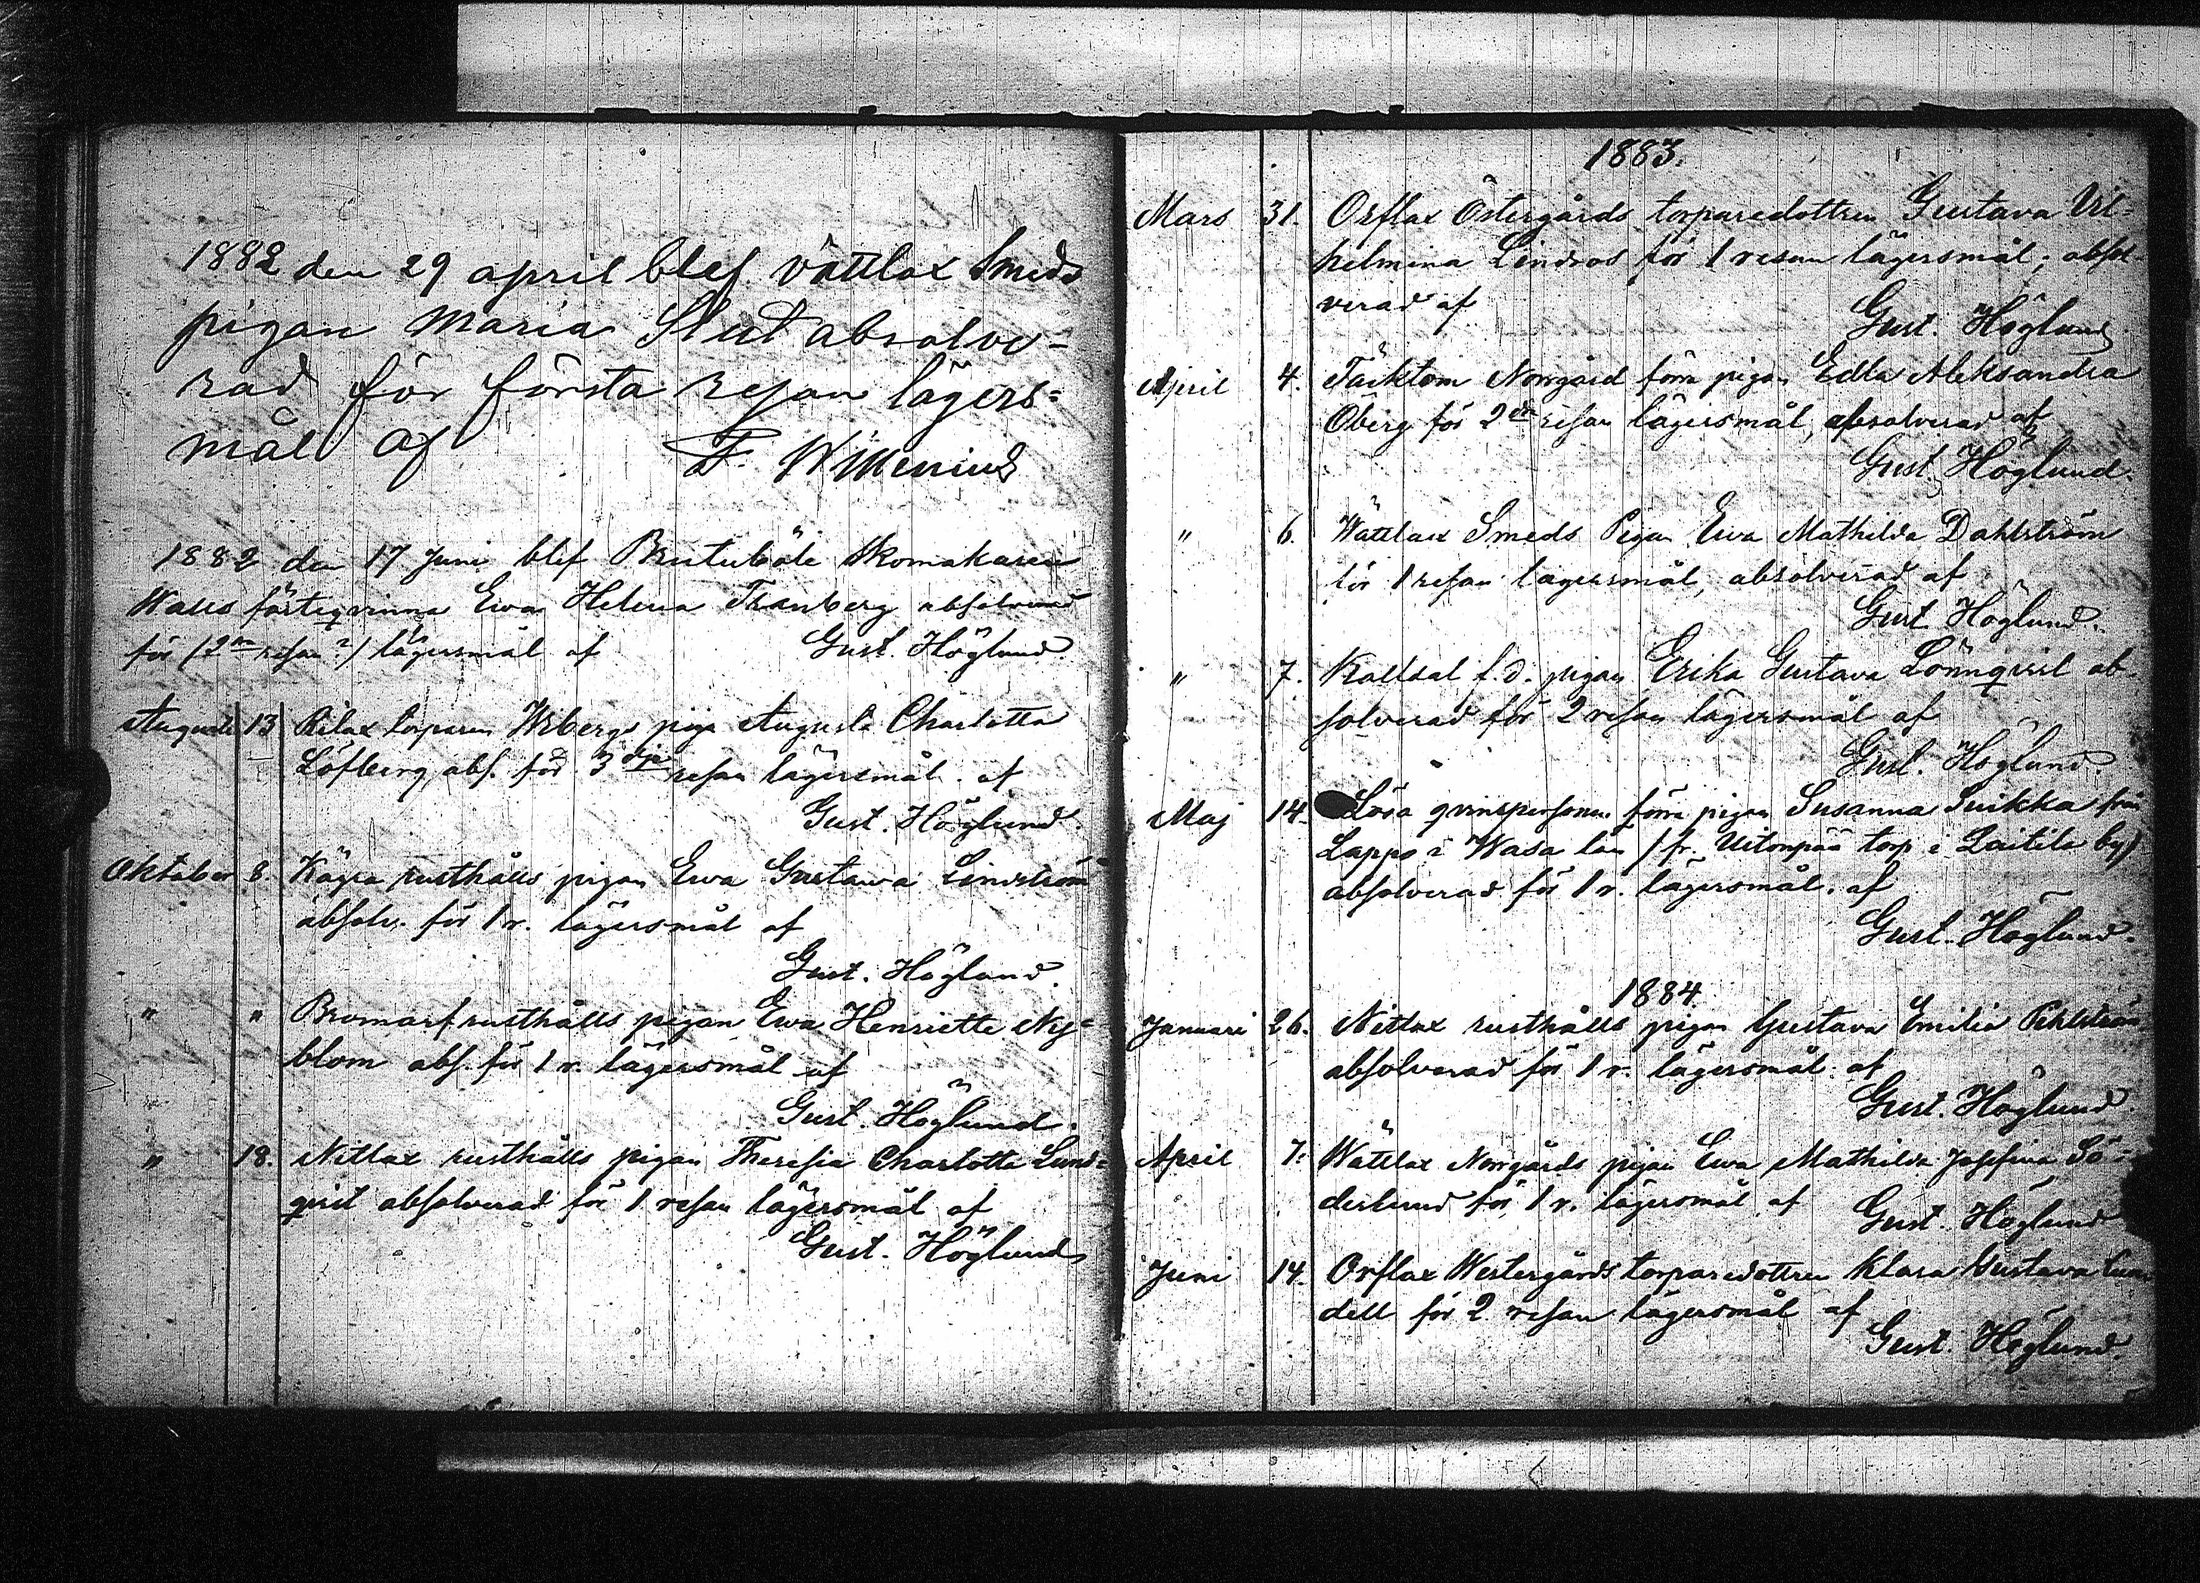 1882 den 29 april blef Vättlax Smeds
pigan Maria Slut absolve=
rad för första resan lägers=
mål af F. Willenius
1882 den 17 Juni blef Brutuböle Skomakaren
Walls fästeqvinna Ewa Helena Tranberg absolverad
för (2dra resan?) lägersmål af Gust. Höglund.
Augusti 13 Rilax torparen Wibergs piga Augusta Charlotta
Löfberg, abs. för 3dje resan lägersmål af
Gust. Höglund
Oktober 8. Kägra rusthålls pigan Ewa Gustawa Lindström
absolv. för 1 r. lägersmål af
Gust. Höglund.
" " Bromarf rusthålls pigan Ewa Henriette Ny=
blom abs. för 1 r. lägersmål af
Gust. Höglund.
" 18. Nitlax rusthålls pigan Theresia Charlotta Lund=
qvist absolverad för 1 resan lägersmål af
Gust. Höglund
1883.
Mars 31. Orflax Östergårds torparedottren Gustava Vil=
helmina Lindros för 1 resan lägersmål; absol
verad af
Gust. Höglund
April 4. Täcktom Norrgård förra pigan Edla Aleksandra
Öberg för 2dra resan lägersmål, absolverad af
Gust. Höglund.
" 6. Wättlax Smeds Pigan Ewa Mathilda Dahlström
för 1 resan lägersmål, absolverad af
Gust. Höglund.
" 7. Kalldal f.d. pigan Erika Gustava Lönnqvist ab=
solverad för 2 resan lägersmål af
Gust. Höglund.
Maj 14. Lösa qvinspersonen förra pigan Susanna Suikka från
Lappo i Wasa län (fr. torp i Laitila by)
absolverad för 1 r. lägersmål, af
Gust. Höglund.
1884.
Januari 26. Nitlax rusthålls pigan Gustava Emilia Pihlström
absolverad för 1 r. lägersmål af
Gust. Höglund.
April 7. Wättlax Norrgårds pigan Ewa Mathilda Josefina Sö=
derlund för 1 r. lägersmål af Gust. Höglund
Juni 14. Orflax Westergårds torparedottren Klara Gustava
dell för 2 resan lägersmål af
Gust. Höglund.